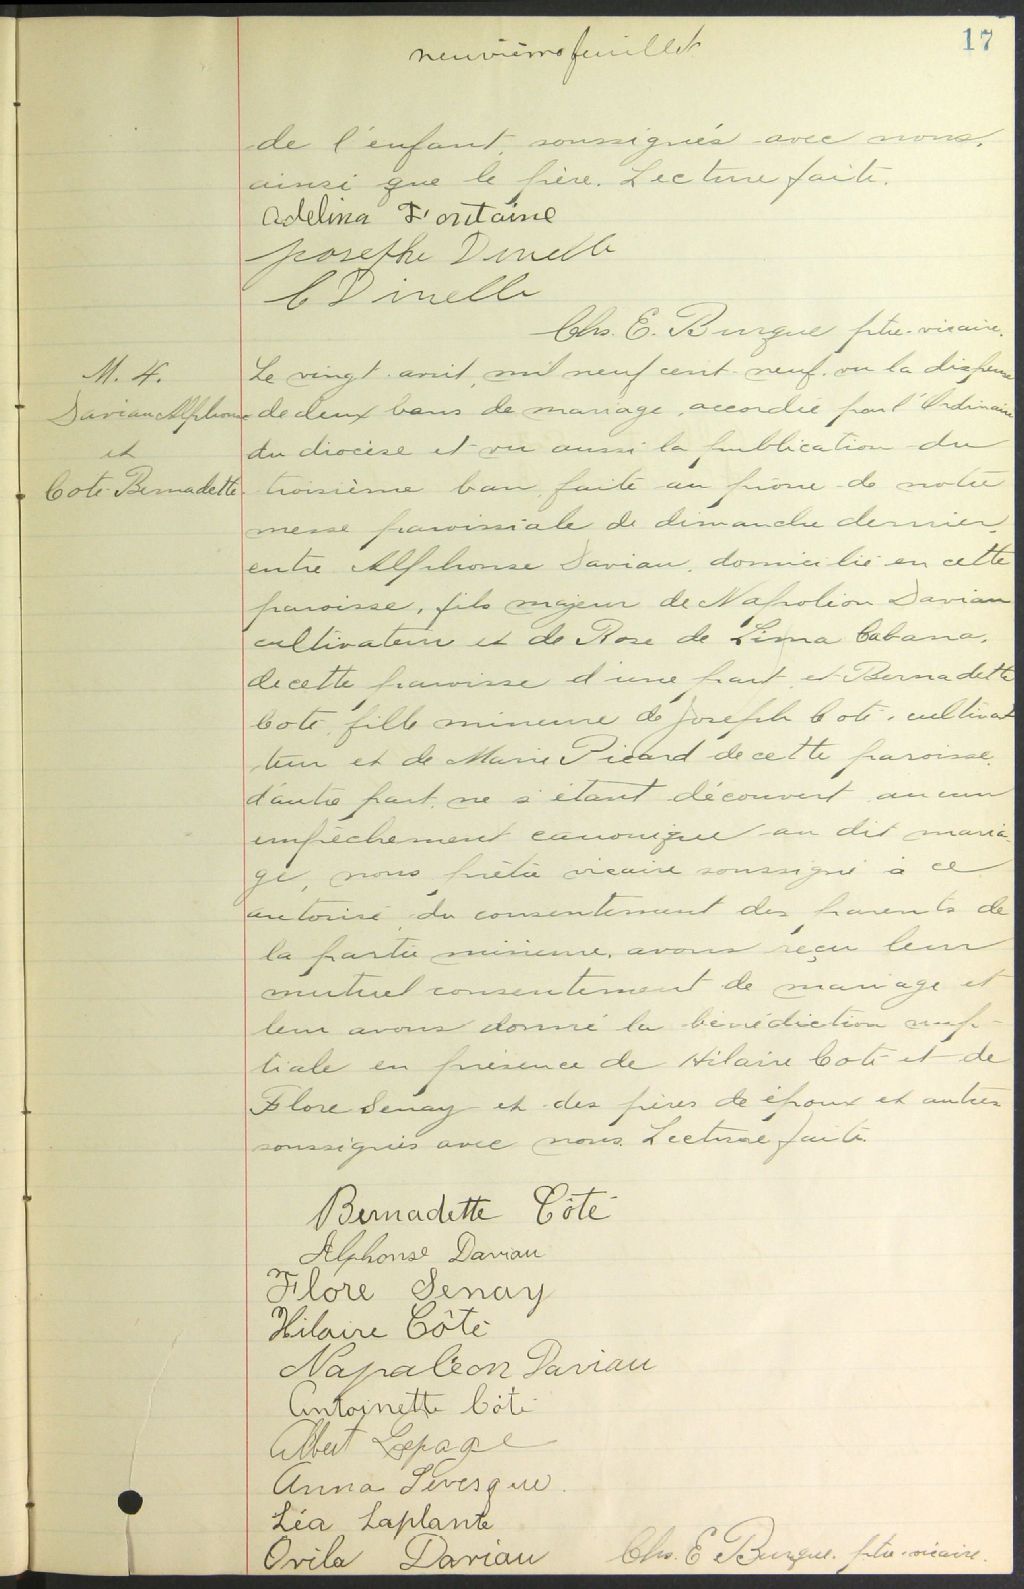 neuvième feuillet
17
de l'enfant, soussignés avec nous,
ainsi que le père. Lecture faite.
Adelina Fontaine
Josephe Dinelle
C Dinelle
Chs. E. Burque ptre-vicaire.
M. 4.
Davian Alphonse
et
Coté Bernadette.
Le vingt août, mil neuf cent neuf, vu la dispense
de deux bans de mariage, accordée par l'Ordinaire
du diocèse et vu aussi la publication du
troisième ban, faite au prône de notre
messe paroissiale de dimanche dernier,
entre Alphonse Davian, domicilié en cette
paroisse, fils majeur de Napoléon Davian
cultivateur et de Rose de Lima Cabana,
de cette paroisse d'une part, et Bernadette
Coté, fille mineure de Joseph Coté, cultiva-
teur et de Marie Picard de cette paroisse
d'autre part, ne s'étant découvert aucun
empêchement canonique au dit maria-
ge, nous, prêtre vicaire soussigné à ce
autorisé, du consentement des parents de
la partie mineure, avons reçu leur
mutuel consentement de mariage et
leur avons donné la bénédiction nup-
tiale en présence de Hilaire Coté et de
Flore Senay et des pères de époux et autres
soussignés avec nous. Lecture faite.
Bernadette Côté
Alphonse Davian
Flore Senay
Hilaire Côté
Napoléon Daviau
Antoinette Côté
Albert Lepage
Anna Lévesque.
Léa Laplante
Ovila Daviau
Chs. E Burque. ptre-vicaire.